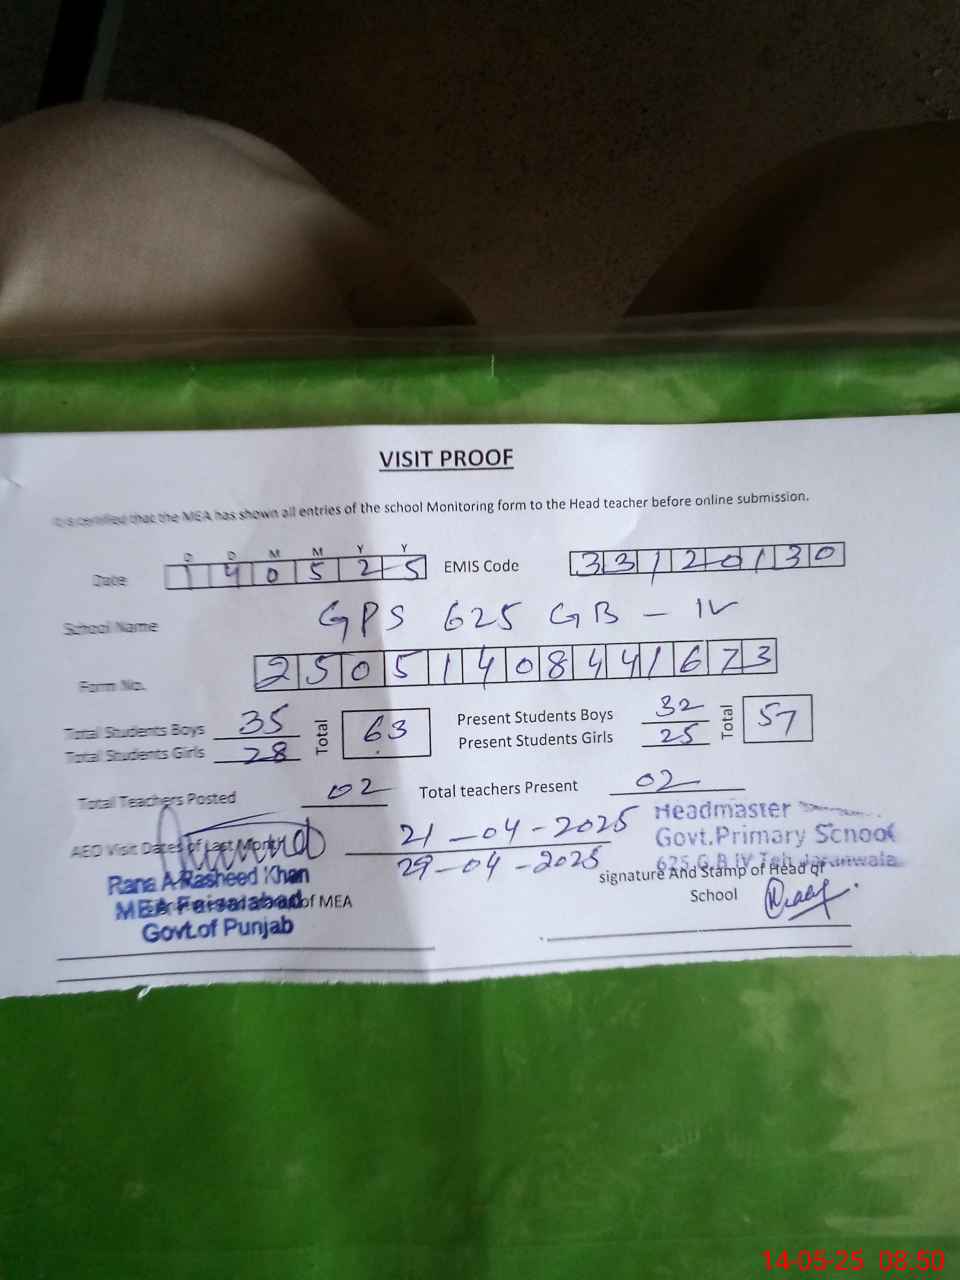 VISIT PROOF
It is certified that the MEA has shown all entries of the school Monitoring form to the Head teacher before online submission.
D D M M Y Y
Date 1 4 0 5 2 5 EMIS Code 3 3 1 2 0 1 3 0
School Name GPS 625 GB - IV
Form No. 2 5 0 5 1 4 0 8 4 4 1 6 7 3
Total Students Boys 35 Total 63 Present Students Boys 32 Total 57
Total Students Girls 28 Present Students Girls 25
Total Teachers Posted 02 Total teachers Present 02
AEO Visit Dates of Last Month 21-04-2025
29-04-2025
Headmaster
Govt.Primary School
625 G.B IV Teh Jaranwala
signature And Stamp of Head of
School
Rana A Rasheed Khan
MEA Faisalabad of MEA
Govt.of Punjab
14-05-25 08:50